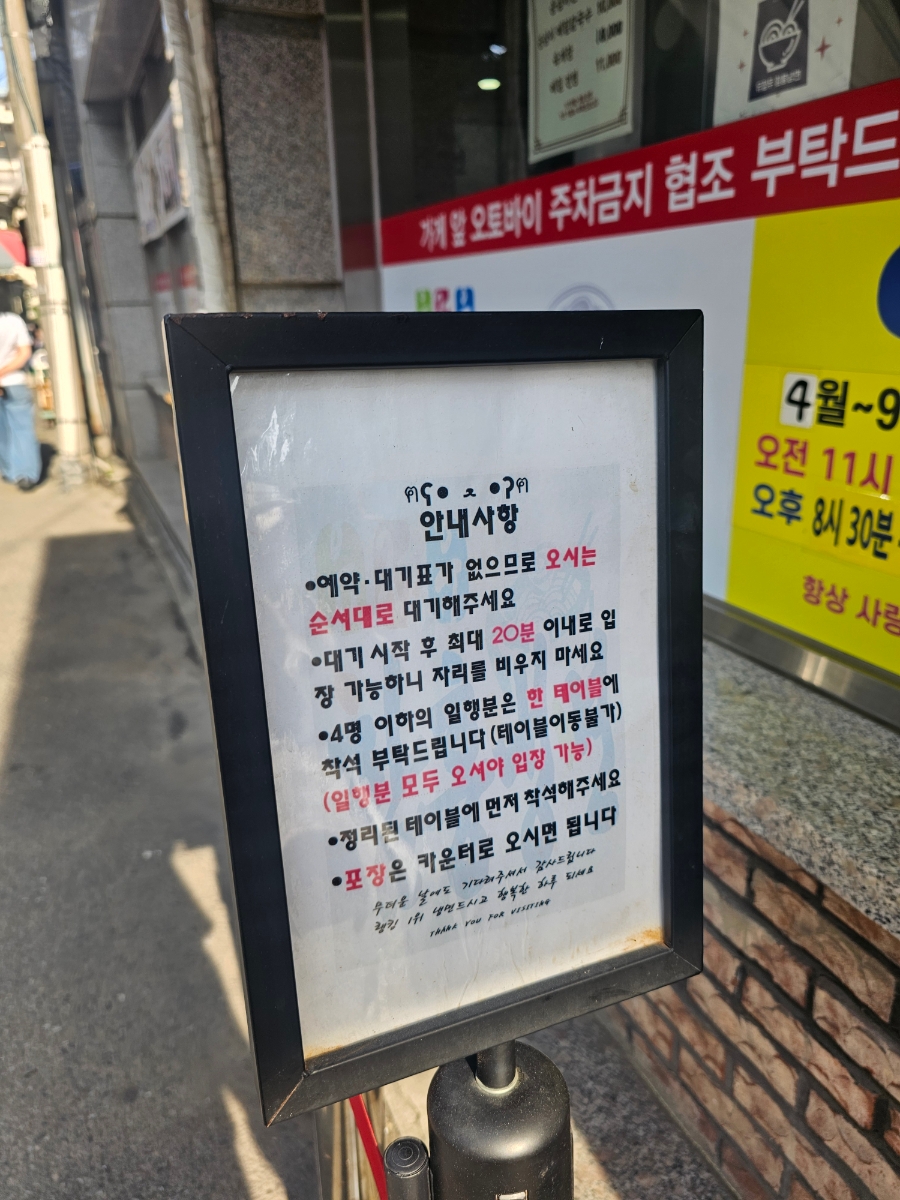 10,000
10,000
11,000
가게 앞 오토바이 주차금지 협조 부탁드
4월~9
오전 11시
오후 8시 30분
항상 사랑
ฅʕ• ﻌ •ʔฅ
안내사항
•예약·대기표가 없으므로 오시는
순서대로 대기해주세요
•대기 시작 후 최대 20분 이내로 입
장 가능하니 자리를 비우지 마세요
•4명 이하의 일행분은 한 테이블에
착석 부탁드립니다(테이블이동불가)
(일행분 모두 오셔야 입장 가능)
•정리된 테이블에 먼저 착석해주세요
•포장은 카운터로 오시면 됩니다
무더운 날에도 기다려주셔서 감사드립니다
랭킹 1위 냉면드시고 행복한 하루 되세요
THANK YOU FOR VISITING